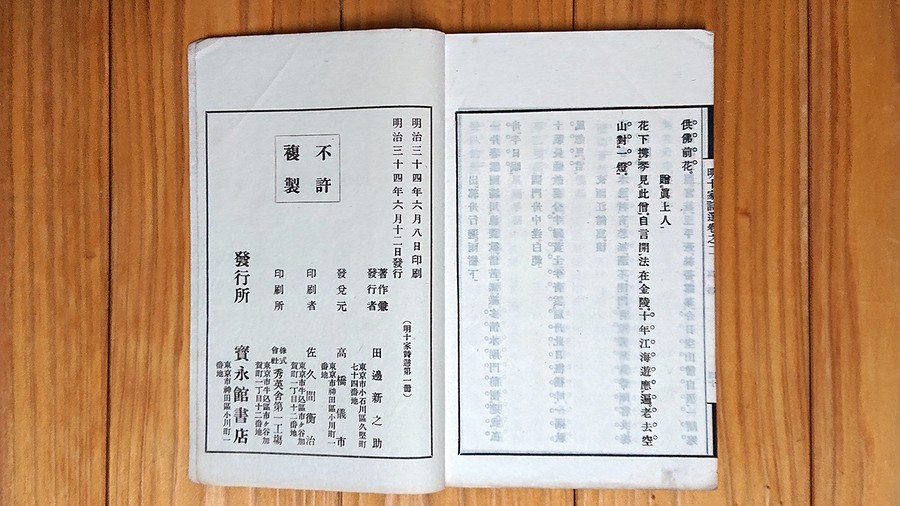 供佛前花。
贈眞上人
花下携琴見此僧。自言開法在金陵。十年江海遊應遍。老去空
山對一燈。
明十家詩選卷之二
明治三十四年六月八日印刷
明治三十四年六月十二日發行
不許
複製
(明十家詩選第一册)
著作兼
發行者
田邊新之助
東京市小石川區久堅町
七十四番地
發兌元
高橋儀市
東京市神田區小川町一
番地
印刷者
佐久間衡治
東京市牛込區市ヶ谷加
賀町一丁目十二番地
印刷所
株式
會社
秀英舍第一工場
東京市牛込區市ヶ谷加
賀町一丁目十二番地
發行所
寶永館書店
東京市神田區小川町一
番地